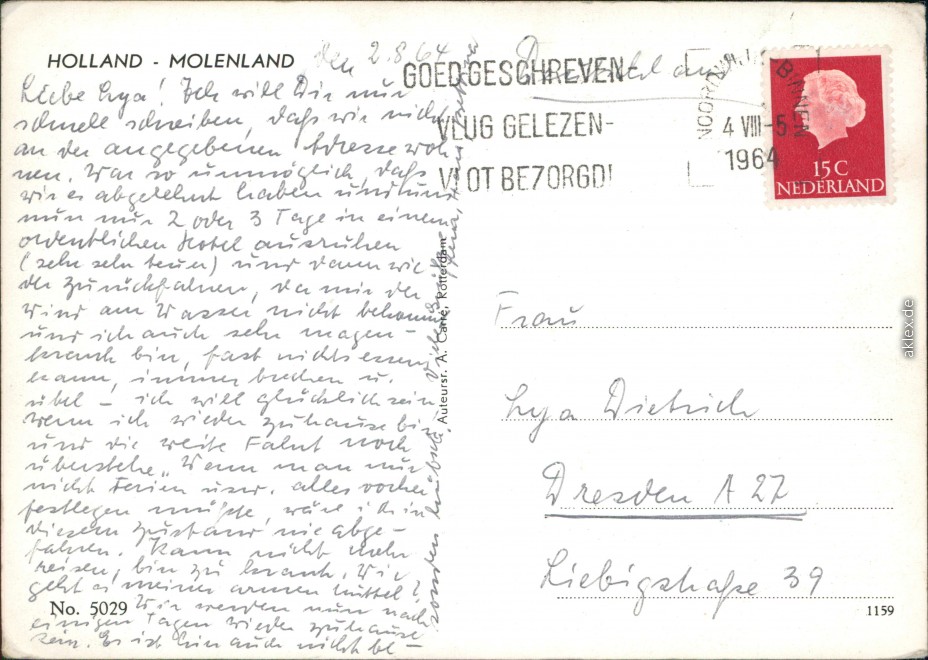 HOLLAND - MOLENLAND
den 2.8.64
Liebe Lya! Ich will Dir nur
schnell schreiben, daß wir nicht
an der angegebenen Adresse woh
nen. War so unmöglich, daß
wir es abgelehnt haben und uns
nun nur 2 oder 3 Tage in einem
ordentlichen Hotel ausruhen
(sehr sehr teuer) und dann wie
der zurückfahren, da mir der
Wind am Wasser nicht bekommt
und ich auch sehr magen-
krank bin, fast nichts essen
kann, immer brechen u.
übel - ich will glücklich sein
wenn ich wieder zuhause bin
und die weite Fahrt noch
überstehe. Wenn man nur
nicht Ferien usw. alles vorher
festlegen müßte, wäre ich in
diesem Zustand nie abge-
fahren. Kann nicht mehr
reisen, bin zu krank. Wie
geht es meiner armen Mittel?
Wir werden nun nach
einigen Tagen wieder zuhause
sein. Es ist hier auch nicht be-
sonders hübsch. Viele Grüße
No. 5029
Auteursr. A. Carré, Rotterdam
GOED GESCHREVEN-
VLUG GELEZEN-
VLOT BEZORGD!
4 VIII-5
1964
15 C
NEDERLAND
Frau
Lya Dietrich
Dresden A 27
Liebigstraße 39
1159
aklex.de